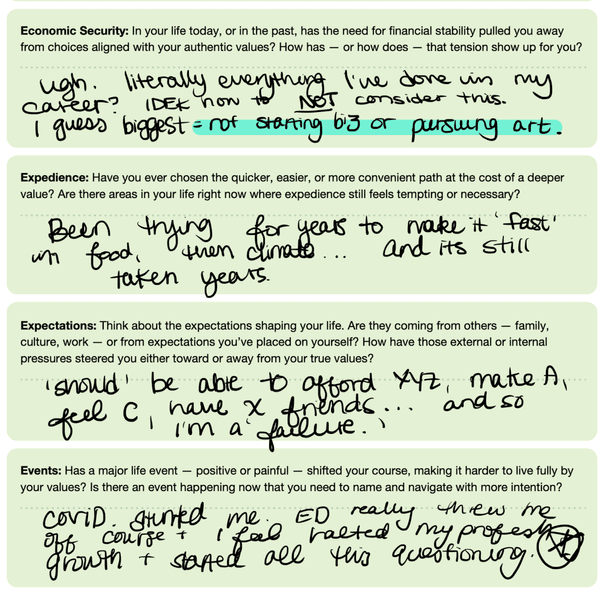 Economic Security: In your life today, or in the past, has the need for financial stability pulled you away
from choices aligned with your authentic values? How has — or how does — that tension show up for you?
ugh. literally everything I've done in my
career? IDEK how to NOT consider this.
I guess biggest = not starting biz or pursuing art.
Expedience: Have you ever chosen the quicker, easier, or more convenient path at the cost of a deeper
value? Are there areas in your life right now where expedience still feels tempting or necessary?
Been trying for years to make it 'fast'
in food, then climate... and its still
taken years.
Expectations: Think about the expectations shaping your life. Are they coming from others — family,
culture, work — or from expectations you've placed on yourself? How have those external or internal
pressures steered you either toward or away from your true values?
'should' be able to afford XYZ, make A,
feel C, have X friends... and so
I'm a 'failure.'
Events: Has a major life event — positive or painful — shifted your course, making it harder to live fully by
your values? Is there an event happening now that you need to name and navigate with more intention?
COVID. stunted me. ED really threw me
off course + I feel halted my profess
growth + started all this questioning.